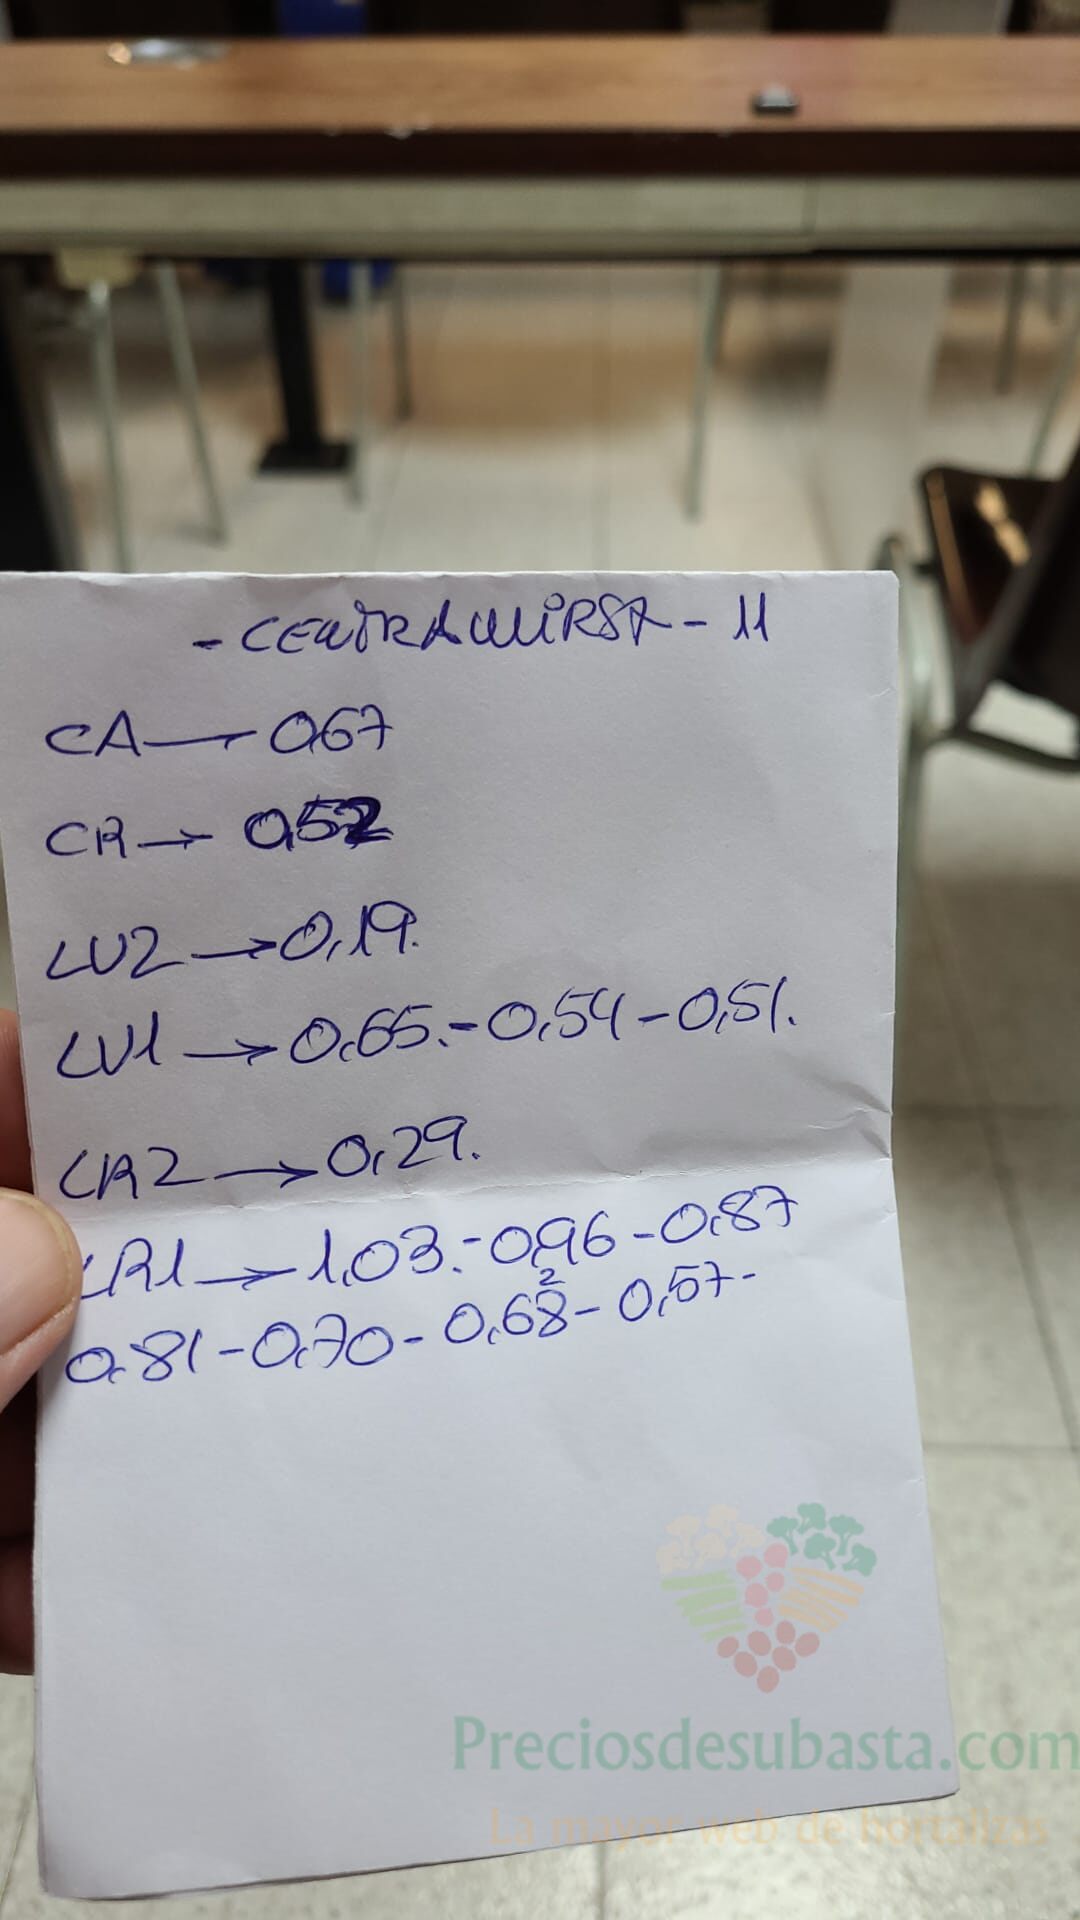 - CENTRAMIRSA - 11
CA — 0,67
CR → 0,52
LV2 → 0,19.
LV1 → 0,65. - 0,54 - 0,51.
LR2 → 0,29.
LR1 → 1,03. - 0,96 - 0,87
0,81 - 0,70 - 0,68² - 0,57 -
Preciosdesubasta.com
La mayor web de hortalizas